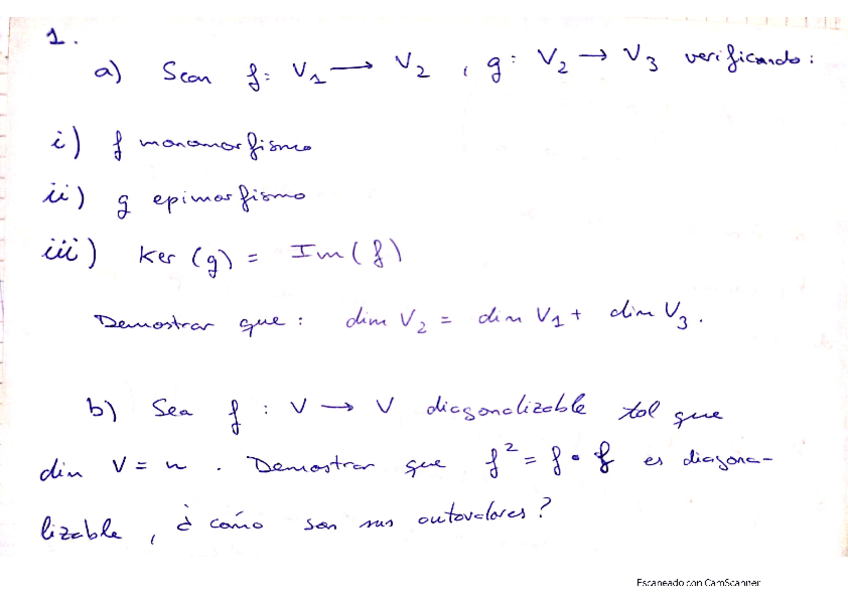 1.
a) Sean f: V₁ → V₂ , g: V₂ → V₃ verificando:
i) f monomorfismo
ii) g epimorfismo
iii) Ker (g) = Im(f)
Demostrar que: dim V₂ = dim V₁ + dim V₃.
b) Sea f : V → V diagonalizable tal que
dim V = n . Demostrar que f² = f∘f es diagona-
lizable, ¿cómo son sus autovalores?
Escaneado con CamScanner